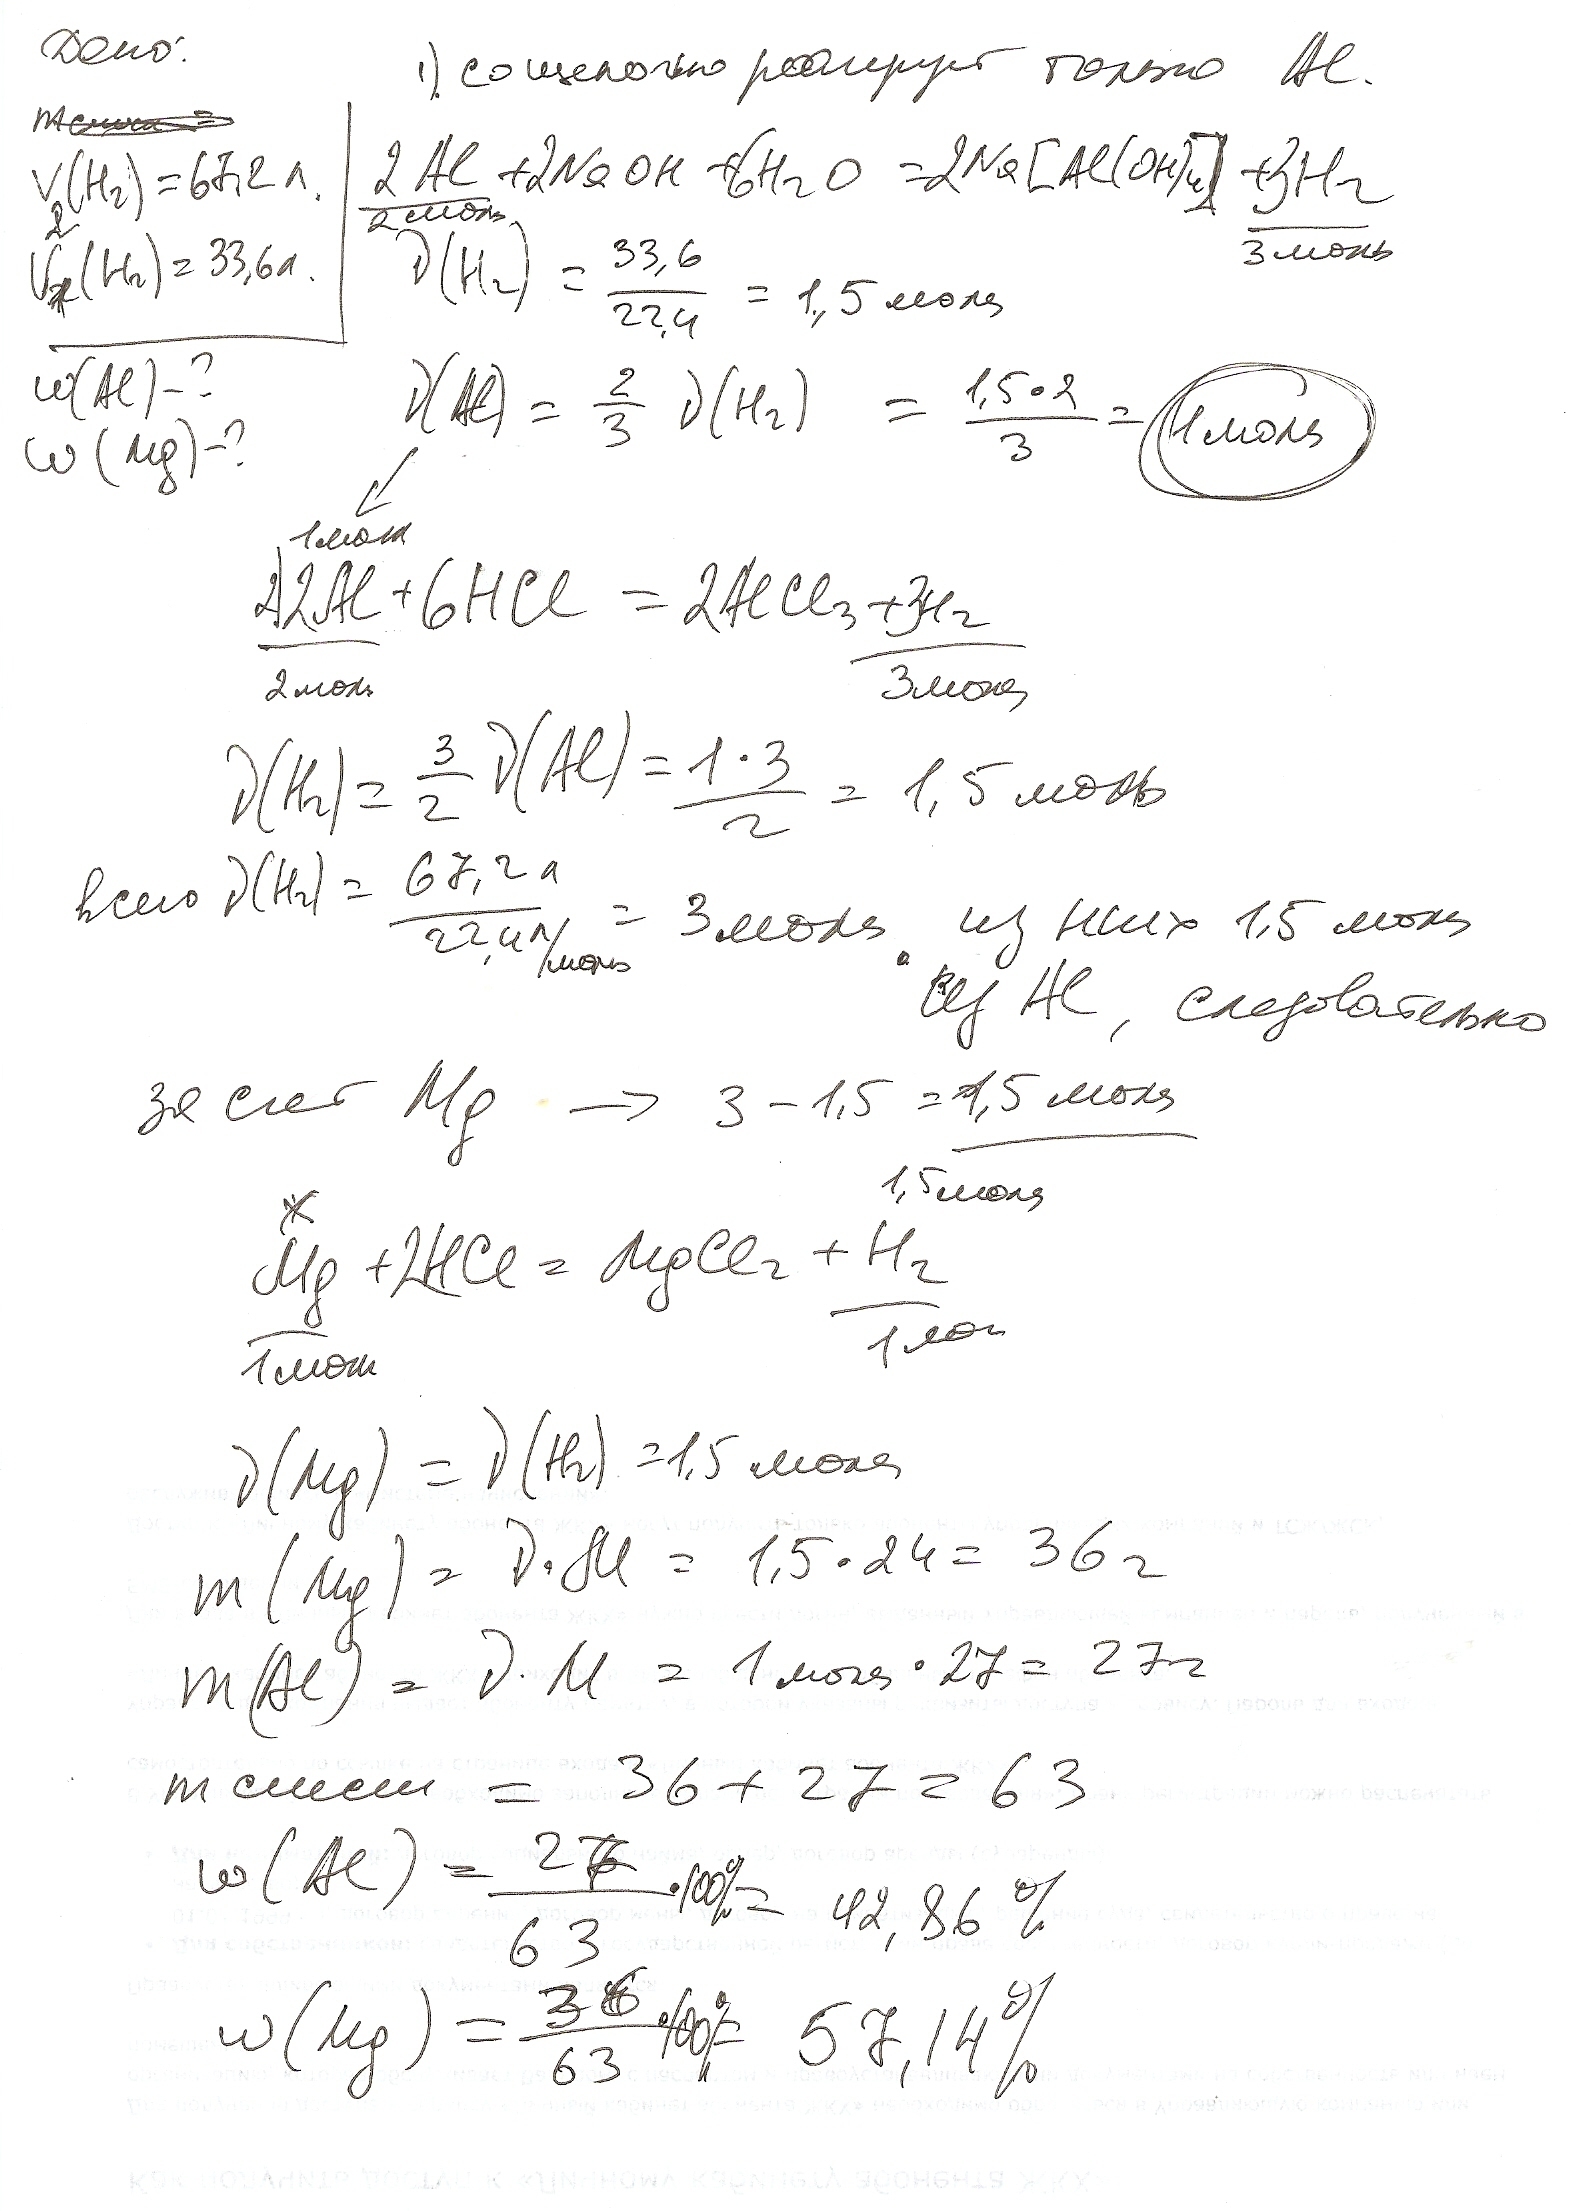 Дано:
V(H₂) = 67,2 л.
V₂(H₂) = 33,6 л.
w(Al) - ?
w(Mg) - ?
1). со щелочью реагирует только Al.
2Al + 2NaOH + 6H₂O = 2Na[Al(OH)₄] + 3H₂
2 моль 3 моль
ν(H₂) = 33,6 / 22,4 = 1,5 моль
ν(Al) = 2/3 ν(H₂) = 1,5·2 / 3 = 1 моль
1 моль
2) 2Al + 6HCl = 2AlCl₃ + 3H₂
2 моль 3 моль
ν(H₂) = 3/2 ν(Al) = 1·3 / 2 = 1,5 моль
всего ν(H₂) = 67,2 л / 22,4 л/моль = 3 моль. из них 1,5 моль
из Al, следовательно
за счет Mg → 3 - 1,5 = 1,5 моль
x 1,5 моль
Mg + 2HCl = MgCl₂ + H₂
1 моль 1 мол
ν(Mg) = ν(H₂) = 1,5 моль
m(Mg) = ν·M = 1,5·24 = 36 г
m(Al) = ν·M = 1 моль·27 = 27 г
m смеси = 36 + 27 = 63
w(Al) = 27 / 63 ·100% = 42,86 %
w(Mg) = 36 / 63 ·100% = 57,14%